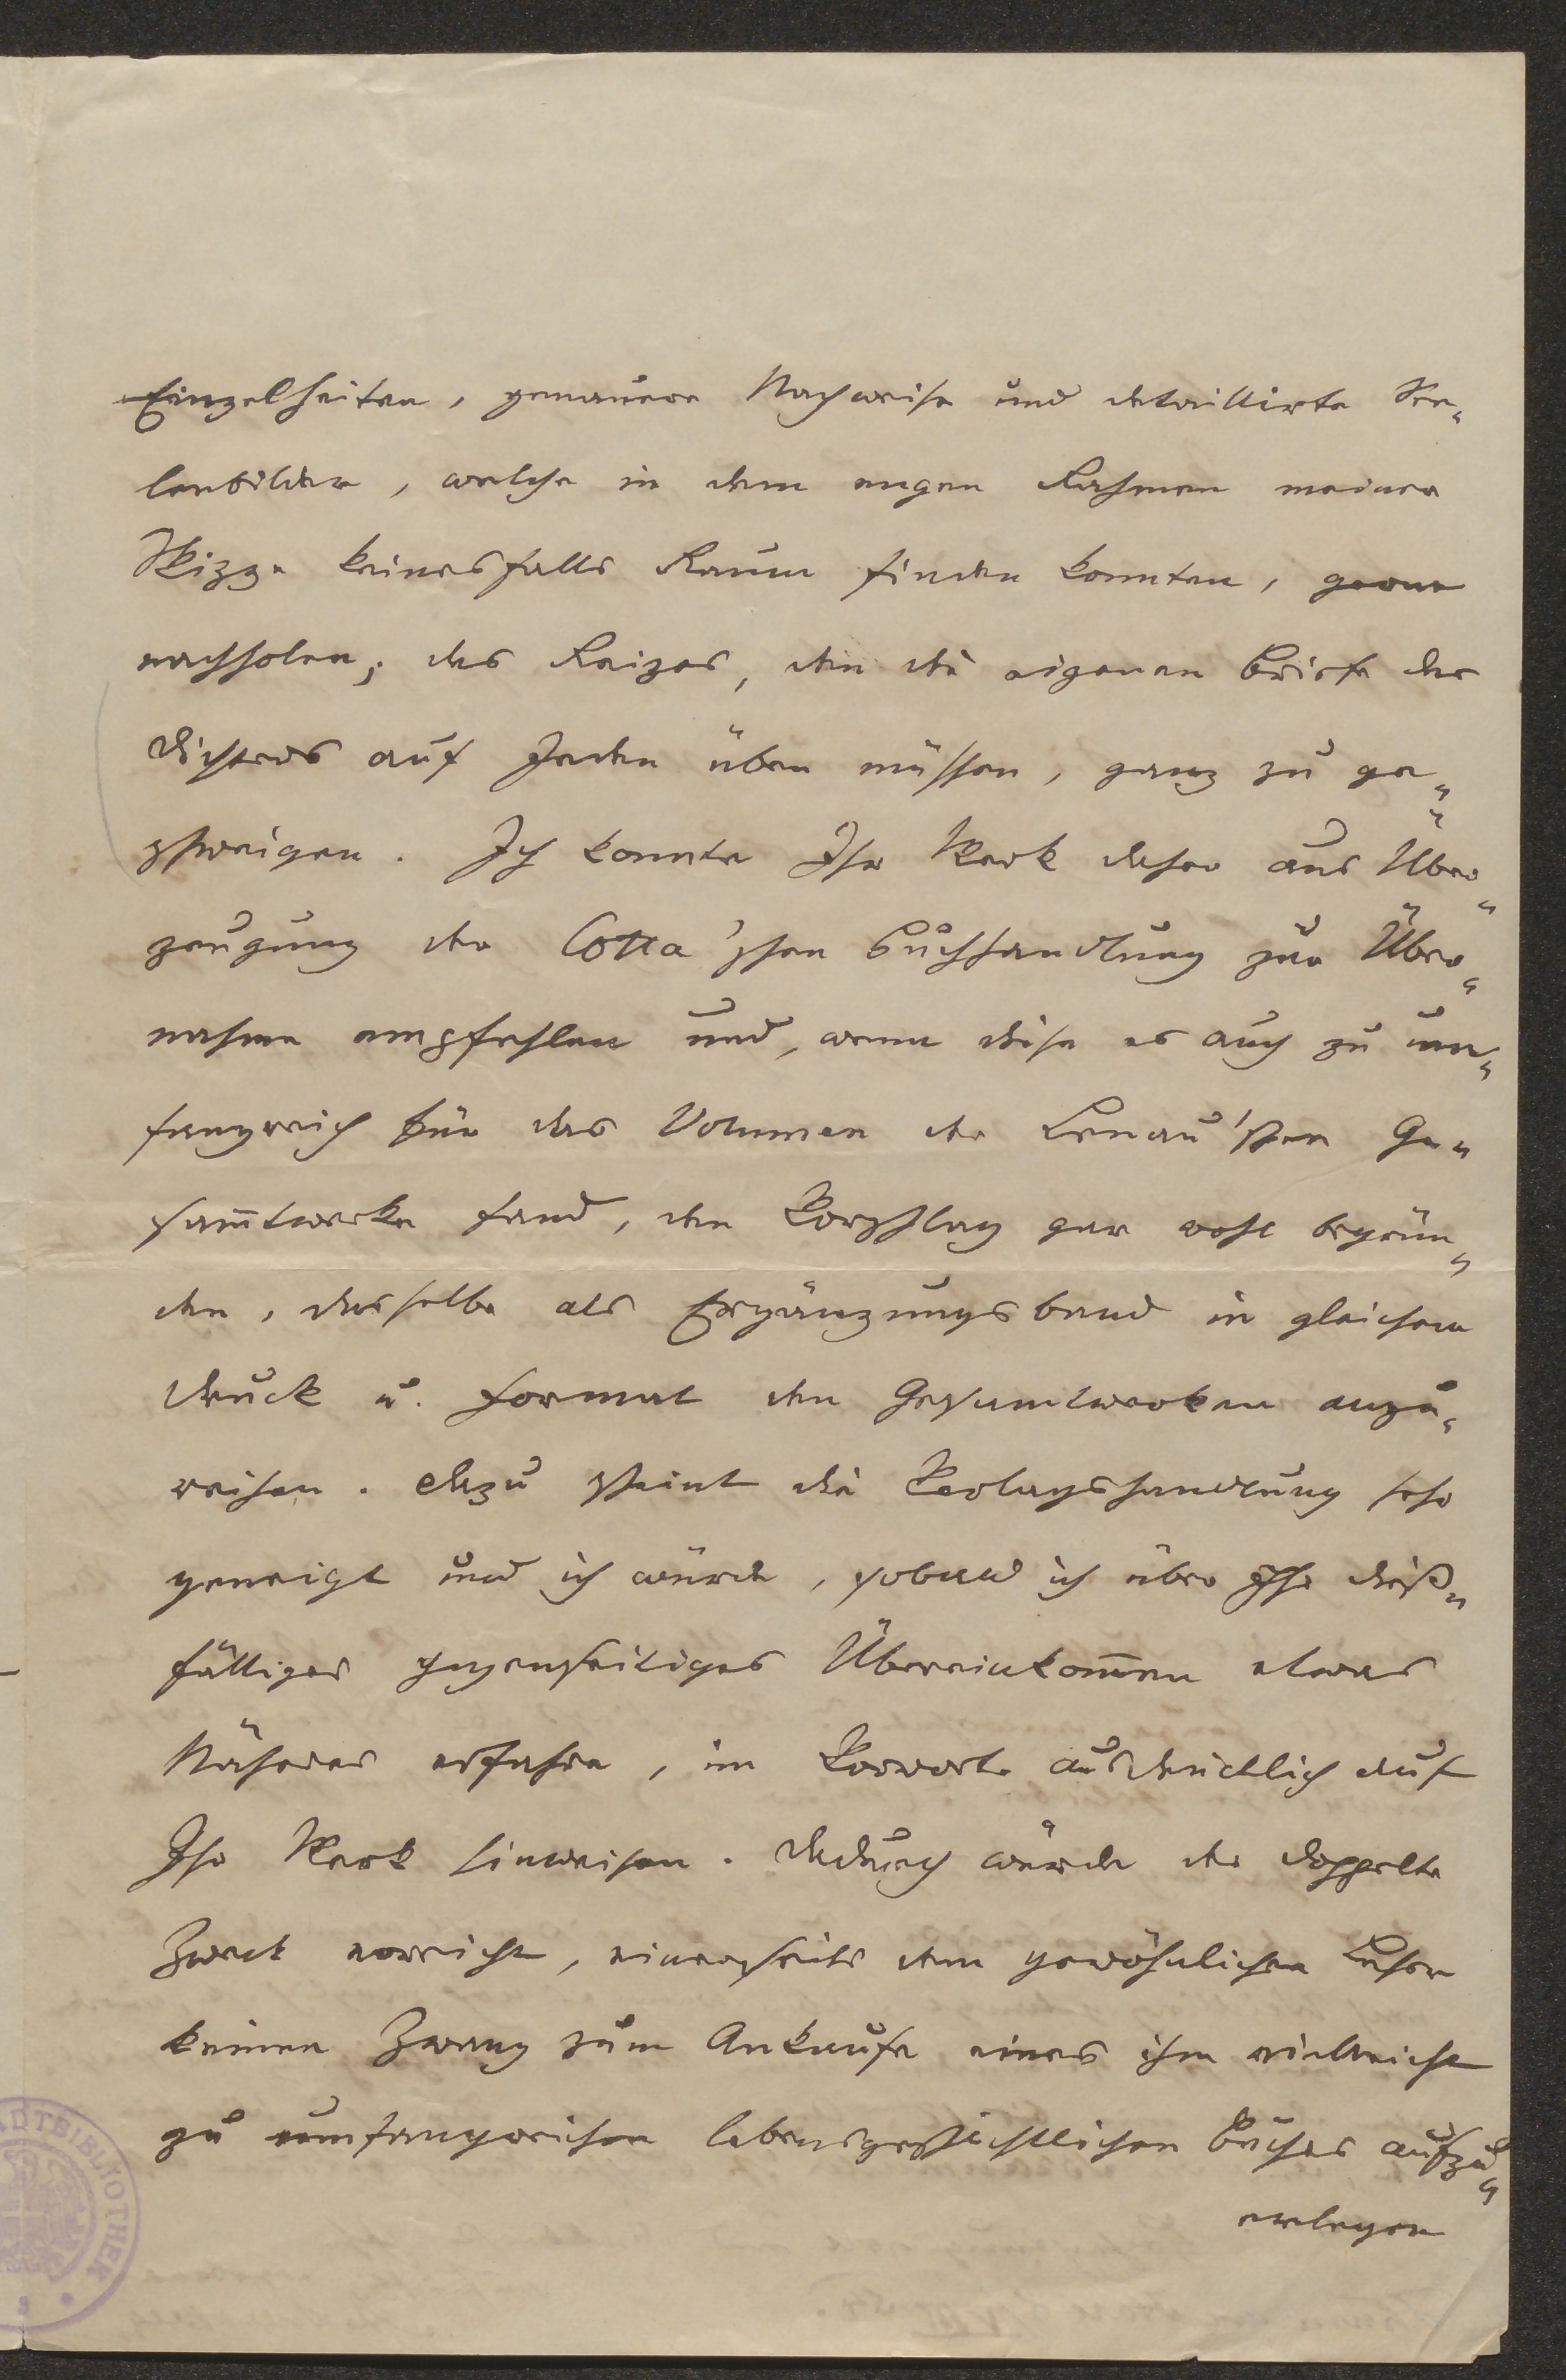 Einzelheiten, genauere Nachweise und detaillirte See-
lenbilder, welche in dem engen Rahmen meiner
Skizze keinesfalls Raum finden konnten, gerne
nachholen; des Reizes, den die eigenen Briefe des
Dichters auf Jeden üben müssen, ganz zu ge-
schweigen. Ich konnte Ihr Werk daher aus Über-
zeugung der Cotta'schen Buchhandlung zur Über-
nahme empfehlen und, wenn diese es auch zu um-
fangreich für das Volumen der Lenau'schen Ge-
sam̅twerke fand, den Vorschlag gar wohl begrün-
den, dasselbe als Ergänzungsband in gleichem
Druck u. Format den Gesamtwerken anzu-
reihen. Dazu scheint die Verlagshandlung sehr
geneigt und ich würde, sobald ich über Ihr dieß-
fälliges gegenseitiges Übereinkom̅en etwas
Näheres erfahre, im Vorworte ausdrücklich auf
Ihr Werk hinweisen. Dadurch würde der doppelte
Zweck erreicht, einerseits dem gewöhnlichen Leser
keinen Zwang zum Ankaufe eines ihm vielleicht
zu umfangreichen lebensgeschichtlichen Buches aufzu-
erlegen
STADTBIBLIOTHEK